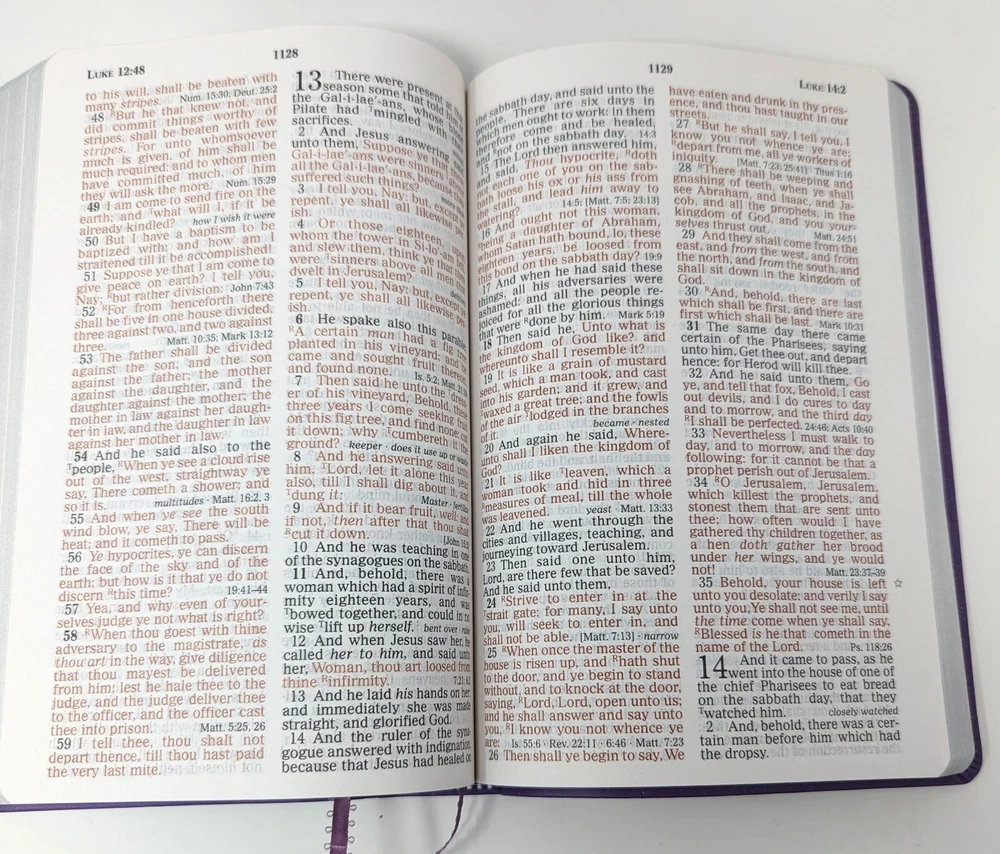 LUKE 12:48
1128
to his will, shall be beaten with
many stripes. Num. 15:30; Deut. 25:2
48 ᴿBut he that knew not, and
did commit things worthy of
stripes, shall be beaten with few
stripes. For unto whomsoever
much is given, of him shall be
much required: and to whom men
have committed much, of him
they will ask the more. Num. 15:29
49 I am come to send fire on the
earth; and ᵀwhat will I, if it be
already kindled? how I wish it were
50 But I have a baptism to be
baptized with; and how am I
straitened till it be accomplished!
51 Suppose ye that I am come to
give peace on earth? I tell you,
Nay; ᴿbut rather division: John 7:43
52 ᴿFor from henceforth there
shall be five in one house divided,
three against two, and two against
three. Matt. 10:35; Mark 13:12
53 The father shall be divided
against the son, and the son
against the father; the mother
against the daughter, and the
daughter against the mother; the
mother in law against her daugh-
ter in law, and the daughter in law
against her mother in law.
54 And he said also to the
ᵀpeople, ᴿWhen ye see a cloud rise
out of the west, straightway ye
say, There cometh a shower; and
so it is. multitudes · Matt. 16:2, 3
55 And when ye see the south
wind blow, ye say, There will be
heat; and it cometh to pass.
56 Ye hypocrites, ye can discern
the face of the sky and of the
earth; but how is it that ye do not
discern ᴿthis time? 19:41–44
57 Yea, and why even of your-
selves judge ye not what is right?
58 ᴿWhen thou goest with thine
adversary to the magistrate, as
thou art in the way, give diligence
that thou mayest be delivered
from him; lest he hale thee to the
judge, and the judge deliver thee
to the officer, and the officer cast
thee into prison. Matt. 5:25, 26
59 I tell thee, thou shalt not
depart thence, till thou hast paid
the very last mite.
13 There were present at
season some that told
the Gal-i-lae′-ans, whose
Pilate had mingled with
sacrifices.
2 And Jesus answering
unto them, Suppose ye
Gal-i-lae′-ans were sinners
all the Gal-i-lae′-ans, because
suffered such things?
3 I tell you, Nay: but, except
repent, ye shall all likewise
ish.
4 Or those eighteen, upon
whom the tower in Sil-o′-am
and slew them, think ye that
were ᴿsinners above all men
dwelt in Jerusalem?
5 I tell you, Nay: but, except
repent, ye shall all likewise
ish.
6 He spake also this parable
ᴿA certain man had a fig
planted in his vineyard; and
came and sought fruit thereon
and found none. Is. 5:2; Matt.
7 Then said he unto the ᵀdress
er of his vineyard, Behold, these
three years I come seeking fruit
on this fig tree, and find none: cut
it down; why ᵀcumbereth it the
ground? keeper · does it use up
8 And he answering said unto
him, ᵀLord, let it alone this
also, till I shall dig about it, and
ᵀdung it: Master ·
9 And if it bear fruit, well: and
if not, then after that thou shalt
ᴿcut it down. [John
10 And he was teaching in one
of the synagogues on the sabbath.
11 And, behold, there was a
woman which had a spirit of infir
mity eighteen years, and was
ᵀbowed together, and could in no
wise ᵀlift up herself. bent over ·
12 And when Jesus saw her, he
called her to him, and said unto
her, Woman, thou art loosed from
thine ᴿinfirmity. 7:21;
13 And he laid his hands on her:
and immediately she was made
straight, and glorified God.
14 And the ruler of the syna
gogue answered with indignation,
because that Jesus had healed on
1129
LUKE 14:2
the sabbath day, and said unto the
people, There are six days in
which men ought to work: in them
therefore come and be healed,
and not on the sabbath day. 14:3
15 The Lord then answered him,
and said, Thou hypocrite, ᴿdoth
not each one of you on the sab-
bath loose his ox or his ass from
the stall, and lead him away to
watering? 14:5; [Matt. 7:5; 23:13]
16 And ought not this woman,
ᴿbeing a daughter of Abraham,
whom Satan hath bound, lo, these
eighteen years, be loosed from
this bond on the sabbath day? 19:9
17 And when he had said these
things, all his adversaries were
ashamed: and all the people re-
joiced for all the glorious things
that were ᴿdone by him. Mark 5:19
18 Then said he, Unto what is
the kingdom of God like? and
whereunto shall I resemble it?
19 It is like a grain of mustard
seed, which a man took, and cast
into his garden; and it grew, and
ᵀwaxed a great tree; and the fowls
of the air ᵀlodged in the branches
of it. became · nested
20 And again he said, Where-
unto shall I liken the kingdom of
God?
21 It is like ᵀleaven, which a
woman took and hid in three
ᴿmeasures of meal, till the whole
was leavened. yeast · Matt. 13:33
22 And he went through the
cities and villages, teaching, and
journeying toward Jerusalem.
23 Then said one unto him,
Lord, are there few that be saved?
And he said unto them,
24 ᴿStrive to enter in at the
ᵀstrait gate: for many, I say unto
you, will seek to enter in, and
shall not be able. [Matt. 7:13] · narrow
25 ᴿWhen once the master of the
house is risen up, and ᴿhath shut
to the door, and ye begin to stand
without, and to knock at the door,
saying, ᴿLord, Lord, open unto us;
and he shall answer and say unto
you, ᴿI know you not whence ye
are: Is. 55:6 · Rev. 22:11 · 6:46 · Matt. 7:23
26 Then shall ye begin to say, We
have eaten and drunk in thy pres-
ence, and thou hast taught in our
streets.
27 ᴿBut he shall say, I tell you, I
know you not whence ye are;
ᴿdepart from me, all ye workers of
iniquity. [Matt. 7:23; 25:41] · Titus 1:16
28 ᴿThere shall be weeping and
gnashing of teeth, when ye shall
see Abraham, and Isaac, and Ja-
cob, and all the prophets, in the
kingdom of God, and you your-
selves thrust out. Matt. 24:51
29 And they shall come from the
east, and from the west, and from
the north, and from the south, and
shall sit down in the kingdom of
God.
30 ᴿAnd, behold, there are last
which shall be first, and there are
first which shall be last. Mark 10:31
31 The same day there came
certain of the Pharisees, saying
unto him, Get thee out, and depart
hence: for Herod will kill thee.
32 And he said unto them, Go
ye, and tell that fox, Behold, I cast
out devils, and I do cures to day
and to morrow, and the third day
ᴿI shall be perfected. 24:46; Acts 10:40
33 Nevertheless I must walk to
day, and to morrow, and the day
following: for it cannot be that a
prophet perish out of Jerusalem.
34 ᴿO Jerusalem, Jerusalem,
which killest the prophets, and
stonest them that are sent unto
thee; how often would I have
gathered thy children together, as
a hen doth gather her brood
under her wings, and ye would
not! Matt. 23:37–39
35 Behold, your house is left ☆
unto you desolate: and verily I say
unto you, Ye shall not see me, until
the time come when ye shall say,
ᴿBlessed is he that cometh in the
name of the Lord. Ps. 118:26
14 And it came to pass, as he
went into the house of one of
the chief Pharisees to eat bread
on the sabbath day, that they
ᵀwatched him. closely watched
2 And, behold, there was a cer-
tain man before him which had
the dropsy.